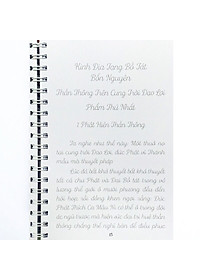 Kinh Địa Tạng Bồ Tát
Bổn Nguyện
Thần Thông Trên Cung Trời Đạo Lợi
Phẩm Thứ Nhất
1. Phật Hiện Thần Thông
Ta nghe như thế này: Một thuở nọ
tại cung trời Đạo Lợi, đức Phật vì Thánh
mẫu mà thuyết pháp.
Lúc đó, bất khả thuyết bất khả thuyết
tất cả chư Phật và Đại Bồ tát trong vô
lượng thế giới ở mười phương đều đến
hội họp, rồi đồng khen ngợi rằng: Đức
Phật Thích Ca Mâu Ni có thể ở trong đời
ác ngũ trược mà hiện sức đại trí huệ thần
thông chẳng thể nghĩ bàn để điều phục